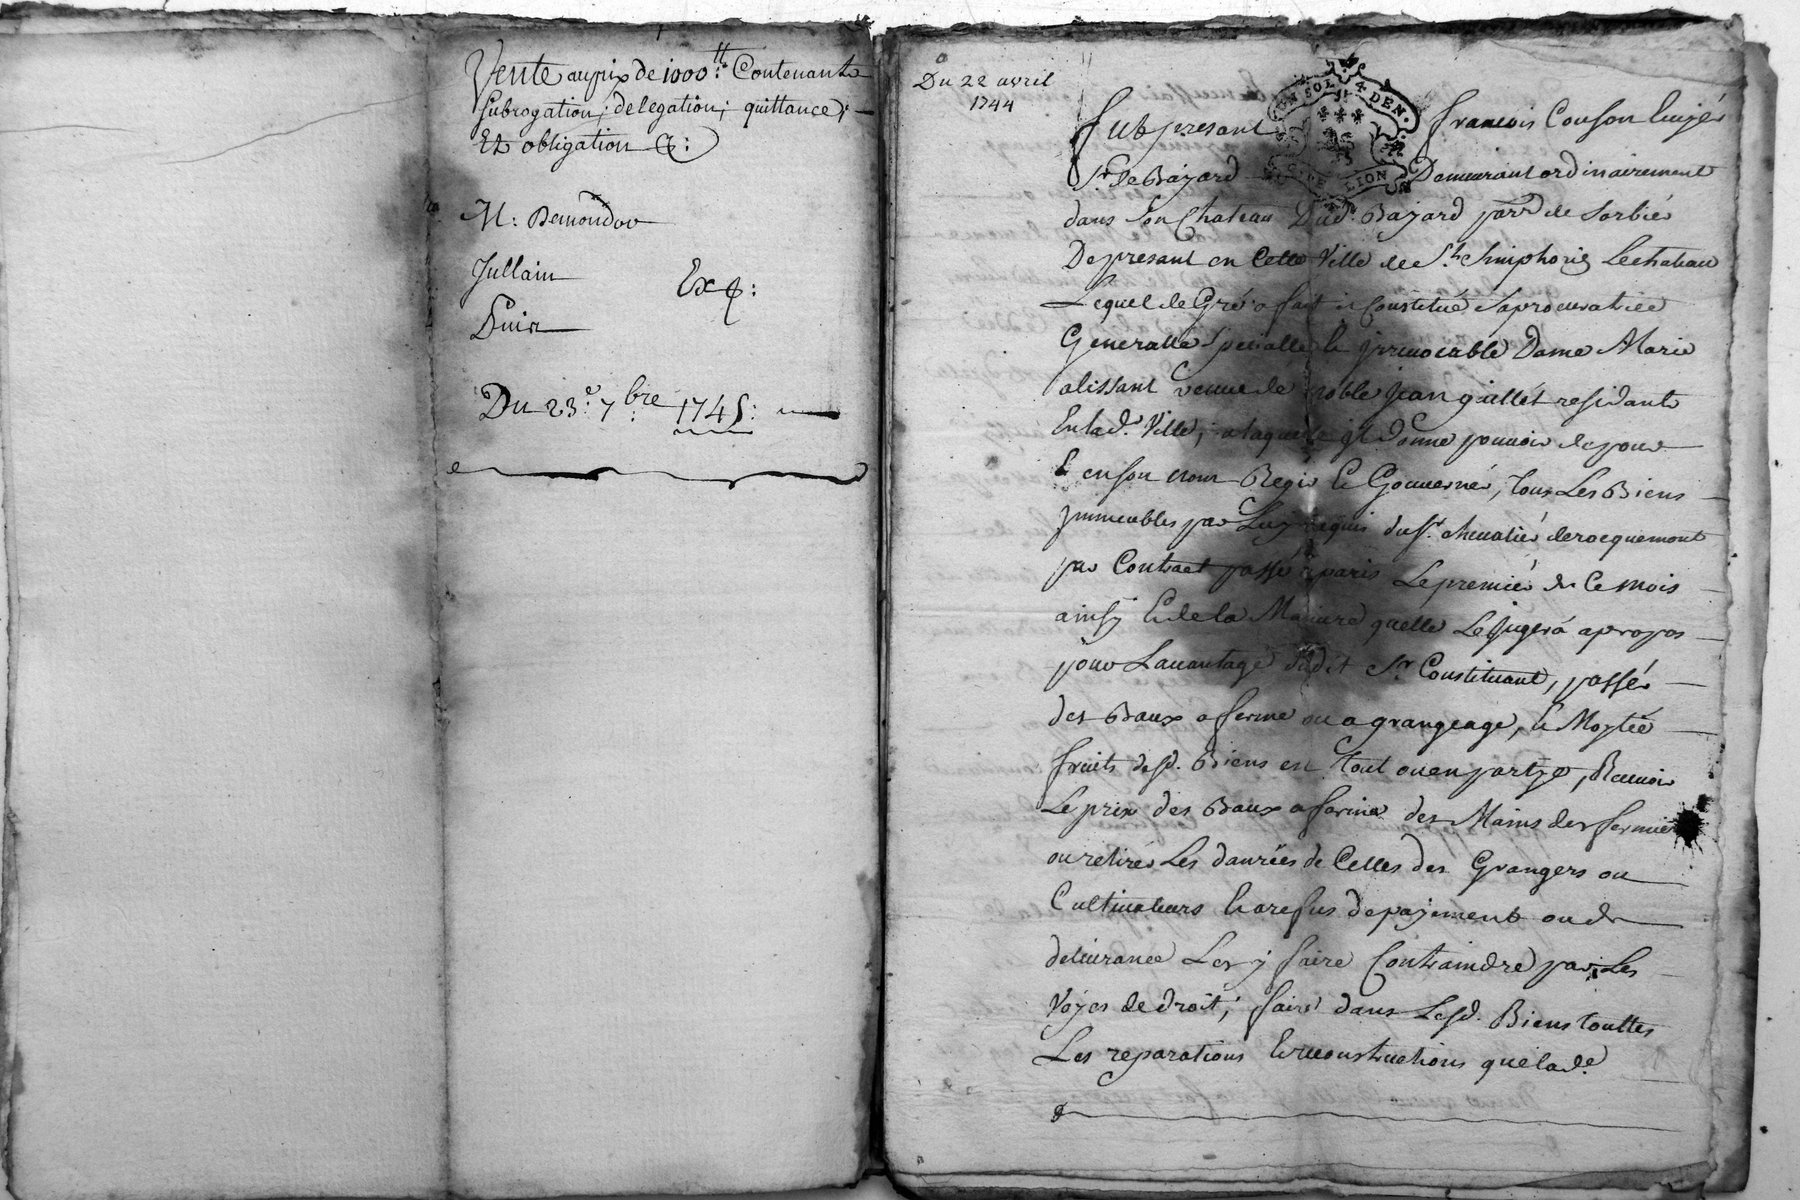 Vente au prix de 1000 tt: Contenante
Subrogation; delegation; quittance; -
Et obligation &:
M: Demondov
Jullain
Exp:
Du 23e. 7bre: 1745:
Du 22 avril
1744
fut presant francois Couson
Sr. De Bayard Demeurant ordinairement
dans Son Chateau Dud. Bayard parr. de Sorbier
De presant en Cette Ville de St. Simphorig Le chateau
Lequel de Gré a fait et Constitué sa procuratrice
Generalle Specialle & irrevocable Dame Marie
alissant veuve de noble Jean gaillet residante
En lad. Ville; a laquelle il donne pouvoir de pour
& en son nom Regir & Gouverner, tous Les Biens
Immeubles par Luy acquis du Sr. chevalier de rocquemont
par Contract passé a paris Le premier de Ce mois
ainsy & de la Maniere quelle Le jugera a propos
pour Lavantage dudit Sr. Constituant, passer
des Baux a ferme ou a grangeage, a Moytié
fruits desd. Biens en tout ou en partye, Recevoir
Le prix des Baux a ferme des Mains des fermiers
ou retirer Les danrées de Celles des Grangers ou
Cultivateurs & a refus de payement ou de
delivrance Les y faire Contraindre par Les
Voyes de droit; faire dans Lesd. Biens touttes
Les reparations & reconstructions que lade.
UN SOL 4 DEN.
G. DE LION